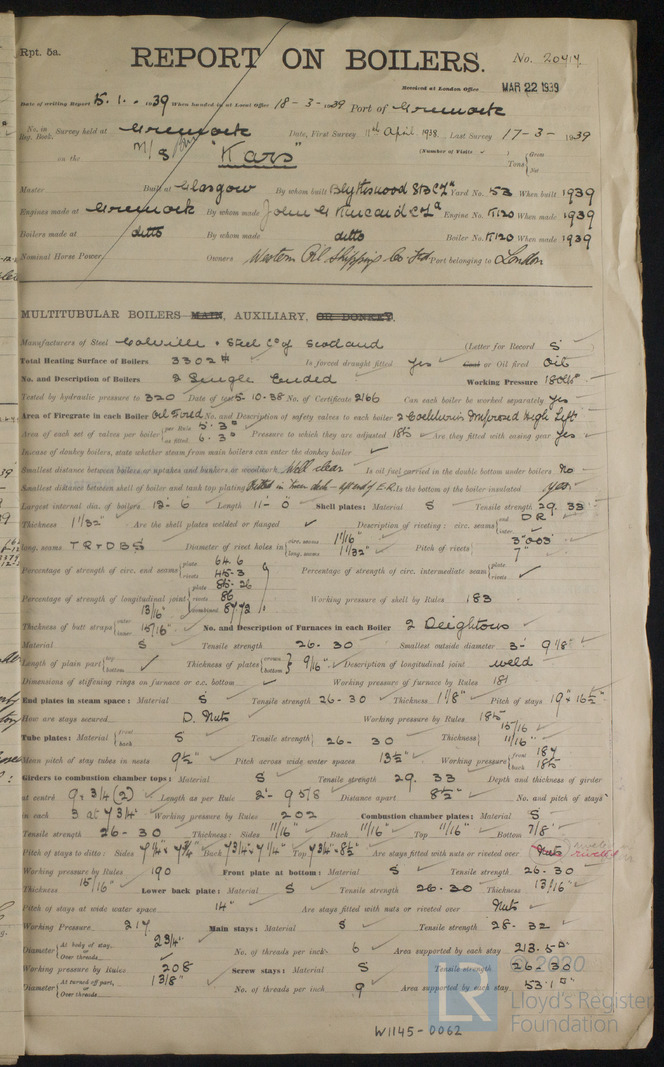 Rpt. 5a.
REPORT ON BOILERS.
No. 20414
Received at London Office MAR 22 1939
Date of writing Report 15. 1. 1939 When handed in at Local Office 18 - 3 - 1939 Port of Greenock
No. in Reg. Book. Survey held at Greenock Date, First Survey 11th April 1938. Last Survey 17-3- 1939
on the M/S "Kars" (Number of Visits ) Tons { Gross Net
Master Built at Glasgow By whom built Blythswood SB Co Ld Yard No. 53 When built 1939
Engines made at Greenock By whom made John G Kincaid & Co Ld Engine No. K120 When made 1939
Boilers made at ditto By whom made ditto Boiler No. K120 When made 1939
Nominal Horse Power Owners Western Oil Shipping Co Ltd Port belonging to London
MULTITUBULAR BOILERS MAIN, AUXILIARY, OR DONKEY.
Manufacturers of Steel Colville & Steel Co of Scotland (Letter for Record S
Total Heating Surface of Boilers 3302 Is forced draught fitted yes Coal or Oil fired Oil
No. and Description of Boilers 2 Single Ended Working Pressure 180 lbs
Tested by hydraulic pressure to 320 Date of test 5.10.38 No. of Certificate 2166 Can each boiler be worked separately yes
Area of Firegrate in each Boiler Oil Fired No. and Description of safety valves to each boiler 2 Cockburn Improved High Lift
Area of each set of valves per boiler { per Rule 5.3 as fitted 6.3 Pressure to which they are adjusted 185 Are they fitted with easing gear yes
In case of donkey boilers, state whether steam from main boilers can enter the donkey boiler
Smallest distance between boilers or uptakes and bunkers or woodwork Well clear Is oil fuel carried in the double bottom under boilers no
Smallest distance between shell of boiler and tank top plating Fitted in tween deck - aft end of E.R. Is the bottom of the boiler insulated yes
Largest internal dia. of boilers 12'- 6 Length 11'- 0" Shell plates: Material S Tensile strength 29. 33
Thickness 1 1/32" Are the shell plates welded or flanged Description of riveting: circ. seams { end DR inter.
long. seams TR & DBS Diameter of rivet holes in { circ. seams 1 1/16" long. seams 1 1/32" Pitch of rivets { 3.003" 7"
Percentage of strength of circ. end seams { plate 64.6 rivets 45.3 Percentage of strength of circ. intermediate seam { plate rivets
Percentage of strength of longitudinal joint { plate 85.26 rivets 86 combined 87.72 Working pressure of shell by Rules 183
Thickness of butt straps { outer 13/16" inner 15/16" No. and Description of Furnaces in each Boiler 2 Deightons
Material S Tensile strength 26 - 30 Smallest outside diameter 3' - 9 1/8"
Length of plain part { top bottom Thickness of plates { crown bottom } 9/16" Description of longitudinal joint weld
Dimensions of stiffening rings on furnace or c.c. bottom Working pressure of furnace by Rules 181
End plates in steam space: Material S Tensile strength 26 - 30 Thickness 1 1/8" Pitch of stays 19" x 16 1/2"
How are stays secured D. Nuts Working pressure by Rules 185
Tube plates: Material { front back S Tensile strength { 26 - 30 Thickness { 15/16 11/16"
Mean pitch of stay tubes in nests 9 1/2" Pitch across wide water spaces 13 1/2" Working pressure { front 187 back 185
Girders to combustion chamber tops: Material S Tensile strength 29. 33 Depth and thickness of girder
at centre 9 x 3/4 (2) Length as per Rule 2'- 9 5/8 Distance apart 8 1/2" No. and pitch of stays
in each 3 at 7 3/4" Working pressure by Rules 202 Combustion chamber plates: Material S
Tensile strength 26 - 30 Thickness: Sides 11/16" Back 11/16" Top 11/16" Bottom 7/8"
Pitch of stays to ditto: Sides 7 1/4 x 7 3/4" Back 7 3/4 x 7 1/4" Top 7 3/4 x 8 1/2" Are stays fitted with nuts or riveted over Nuts riveted
Working pressure by Rules 190 Front plate at bottom: Material S Tensile strength 26 - 30
Thickness 15/16" Lower back plate: Material S Tensile strength 26 - 30 Thickness 13/16"
Pitch of stays at wide water space 14" Are stays fitted with nuts or riveted over Nuts
Working Pressure 217 Main stays: Material S Tensile strength 28 - 32
Diameter { At body of stay, or Over threads 2 3/4" No. of threads per inch 6 Area supported by each stay 213.5
Working pressure by Rules 208 Screw stays: Material S Tensile strength 26 - 30
Diameter { At turned off part, or Over threads 1 3/8" No. of threads per inch 9 Area supported by each stay 53.1
© 2020
LR Lloyd's Register Foundation
W1145-0062